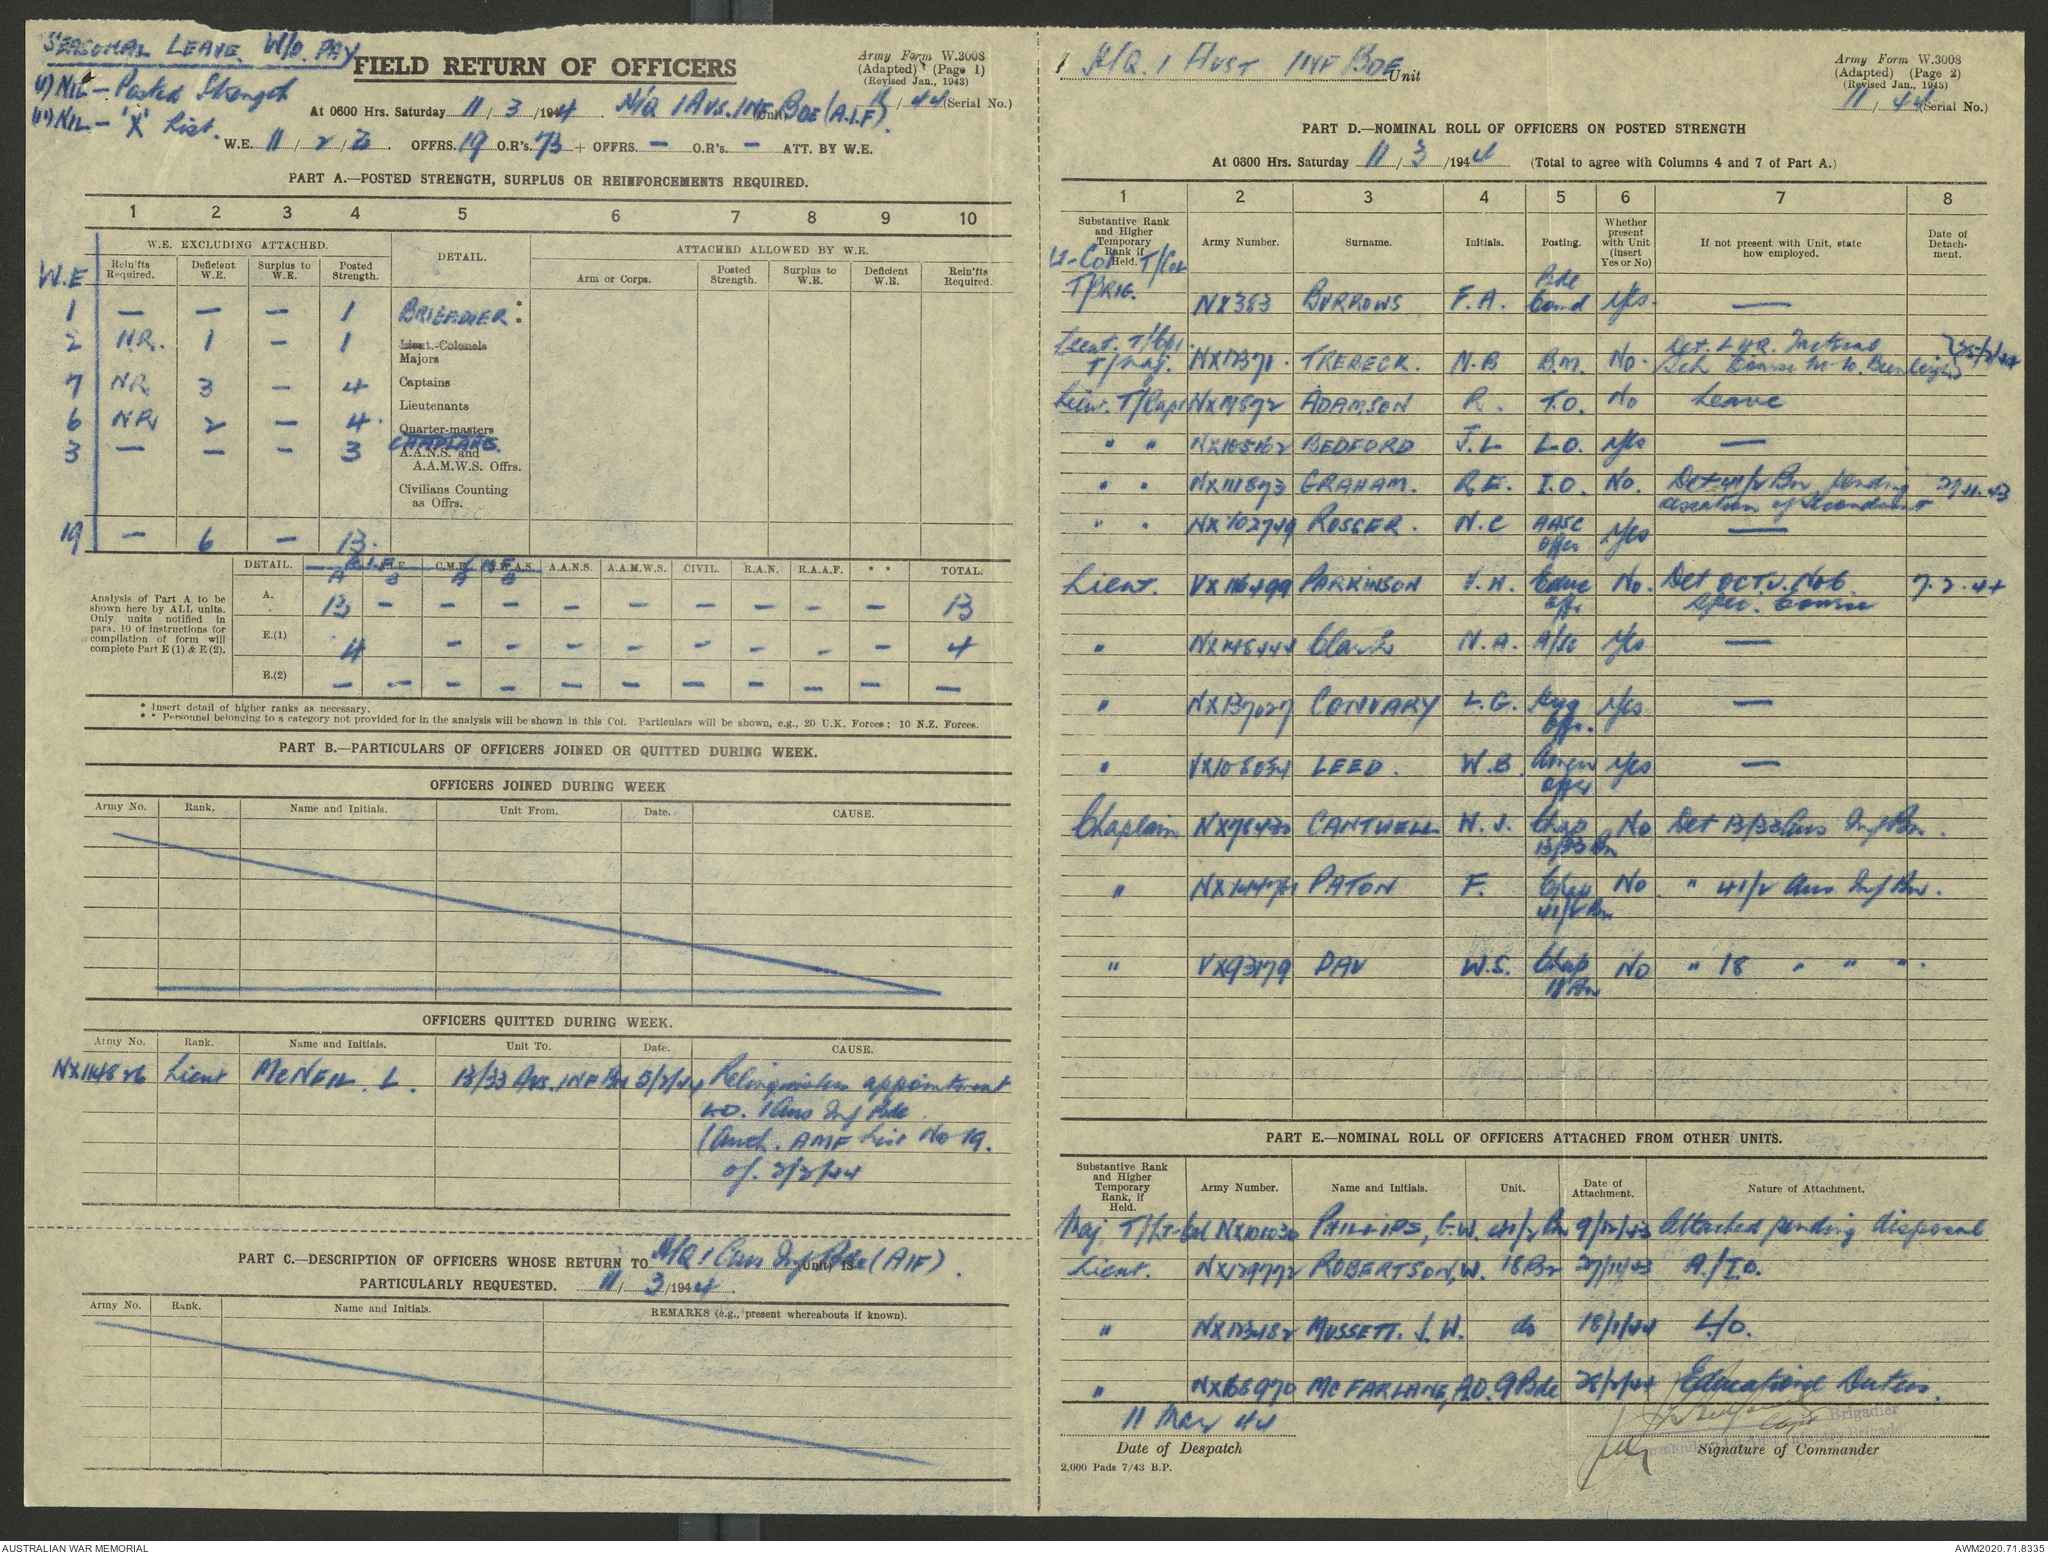 SEASONAL LEAVE W/O PAY
(i) NIL - Posted Strength
(ii) NIL - 'X' List.
FIELD RETURN OF OFFICERS
Army Form W.3008
(Adapted) (Page 1)
(Revised Jan., 1943)
At 0600 Hrs. Saturday 11/3/1944. H/Q 1 AUS. INF. BDE (A.I.F). (Unit) 11/44 (Serial No.)
W.E. 11/2/3. OFFRS. 19 O.R's. 73 + OFFRS. - O.R's. - ATT. BY W.E.
PART A.—POSTED STRENGTH, SURPLUS OR REINFORCEMENTS REQUIRED.
1 2 3 4 5 6 7 8 9 10
W.E. EXCLUDING ATTACHED.
DETAIL.
ATTACHED ALLOWED BY W.E.
W.E
Rein'fts Required.
Deficient W.E.
Surplus to W.E.
Posted Strength.
Arm or Corps.
Posted Strength.
Surplus to W.E.
Deficient W.E.
Rein'fts Required.
1 - - - 1 BRIGADIER *
Lieut.-Colonels
2 NR. 1 - 1 Majors
7 NR 3 - 4 Captains
Lieutenants
6 NR 2 - 4 Quarter-masters
CHAPLAINS.
3 - - - 3 A.A.N.S. and
A.A.M.W.S. Offrs.
Civilians Counting
as Offrs.
19 - 6 - 13
DETAIL. A.I.F. C.M.F. A.W.A.S. A.A.N.S. A.A.M.W.S. CIVIL. R.A.N. R.A.A.F. * * TOTAL.
A B A B
Analysis of Part A to be
shown here by ALL units.
Only units notified in
para. 10 of instructions for
compilation of form will
complete Part E (1) & E (2).
A. 13 - - - - - - - - - 13
E.(1) 4 - - - - - - - - 4
E.(2) - - - - - - - - - - -
* Insert detail of higher ranks as necessary.
* * Personnel belonging to a category not provided for in the analysis will be shown in this Col. Particulars will be shown, e.g., 20 U.K. Forces; 10 N.Z. Forces.
PART B.—PARTICULARS OF OFFICERS JOINED OR QUITTED DURING WEEK.
OFFICERS JOINED DURING WEEK
Army No. Rank. Name and Initials. Unit From. Date. CAUSE.
OFFICERS QUITTED DURING WEEK.
Army No. Rank. Name and Initials. Unit To. Date. CAUSE.
NX114826 Lieut McNEIL. L. 13/33 AUS. INF Bn 5/2/44 Relinquishes appointment
LO. 1 Aus Inf Bde
(Auth. AMF List No 19.
of. 2/2/44
PART C.—DESCRIPTION OF OFFICERS WHOSE RETURN TO H/Q 1 Aus Inf Bde (AIF). (Unit) IS
PARTICULARLY REQUESTED. 11/3/1944.
Army No. Rank. Name and Initials. REMARKS (e.g., present whereabouts if known).
H/Q. 1 AUST INF BDE Unit
Army Form W.3008
(Adapted) (Page 2)
(Revised Jan., 1943)
11/44 (Serial No.)
PART D.—NOMINAL ROLL OF OFFICERS ON POSTED STRENGTH
At 0300 Hrs. Saturday 11/3/1944 (Total to agree with Columns 4 and 7 of Part A.)
1 2 3 4 5 6 7 8
Substantive Rank and Higher Temporary Rank if Held.
Army Number.
Surname.
Initials.
Posting.
Whether present with Unit (insert Yes or No)
If not present with Unit, state how employed.
Date of Detachment.
Lt-Col T/Col
T/BRIG. NX383 BURROWS F.A. Bde Comd Yes. -
Lieut. T/Capt.
T/Maj. NX17371. TREBECK. N.B B.M. No. Det. LHQ. Tactical
Sch Course No 10. 25/2/44
Lieut. T/Capt NX19872 ADAMSON R. T.O. No Leave
" " NX105162 BEDFORD J.L L.O. Yes -
" " NX111873 GRAHAM. R.E. I.O. No. Det 41/2 Bn pending
cessation of secondment 29.11.43
" " NX102749 ROSSER. N.C AASC Offr Yes -
Lieut. VX116499 PARKINSON V.A. Educ Off. No. Det OCTU. No 6
Spec. Course 7.2.44
" NX148444 Clark N.A. A/SC Yes -
" NX137027 CONVARY L.G. Hyg Offr. Yes -
" VX108034 LEED. W.B. Amen Offr Yes -
Chaplain NX78430 CANTWELL N.J. Chap 13/33 Bn No Det 13/33 Aus Inf Bn.
" NX144761 PATON F. Chap 41/2 Bn No " 41/2 Aus Inf Bn.
" VX93179 DAU W.S. Chap 18 Bn No " 18 " " "
PART E.—NOMINAL ROLL OF OFFICERS ATTACHED FROM OTHER UNITS.
Substantive Rank and Higher Temporary Rank, if Held.
Army Number. Name and Initials. Unit. Date of Attachment. Nature of Attachment.
Maj T/Lt-Col NX101030 PHILLIPS, G.W. 41/2 Bn 9/12/43 Attached pending disposal
Lieut. NX129772 ROBERTSON, W. 18 Bn 27/11/43 A./I.O.
" NX123482 MUSSETT. J.W. do 18/1/44 L/O.
" NX168970 McFARLANE, A.D. 9 Bde 28/2/44 Educational Duties.
11 Mar 44
Date of Despatch
Capt
Brigadier
Signature of Commander
2,000 Pads 7/43 B.P.
AUSTRALIAN WAR MEMORIAL
AWM2020.71.8335